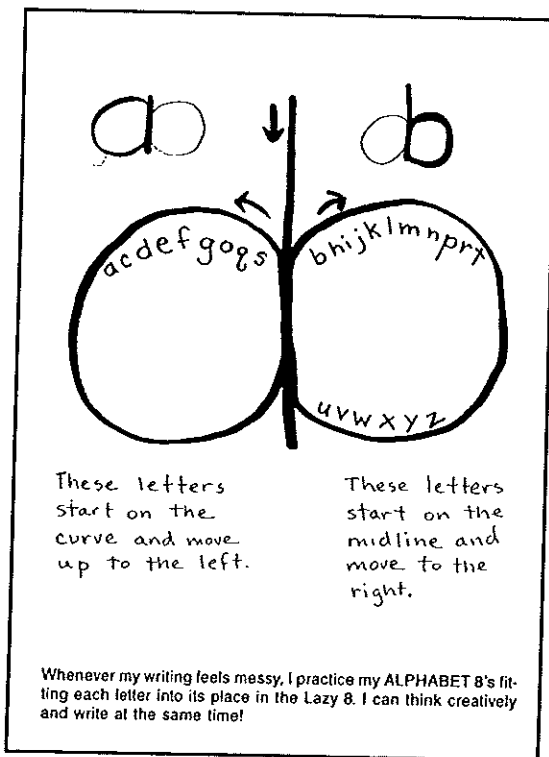 a b
acdefgoqs
bhijklmnprt
uvwxyz
These letters
start on the
curve and move
up to the left.
These letters
start on the
midline and
move to the
right.
Whenever my writing feels messy, I practice my ALPHABET 8's fit-
ting each letter into its place in the Lazy 8. I can think creatively
and write at the same time!